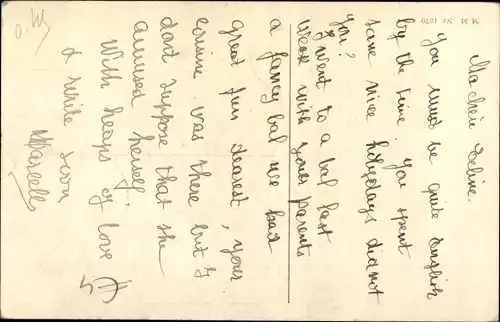 M. M. Nr. 1270
Ma chère Celine.
you must be quite English
by the time. you spent
some nice holydays did not
you?
I went to a bal last
week with your parents
a fancy bal we had
great fun dearest, your
cousine was there but I
dont suppose that she
amused herself.
With heaps of love
& write soon
Marcelle